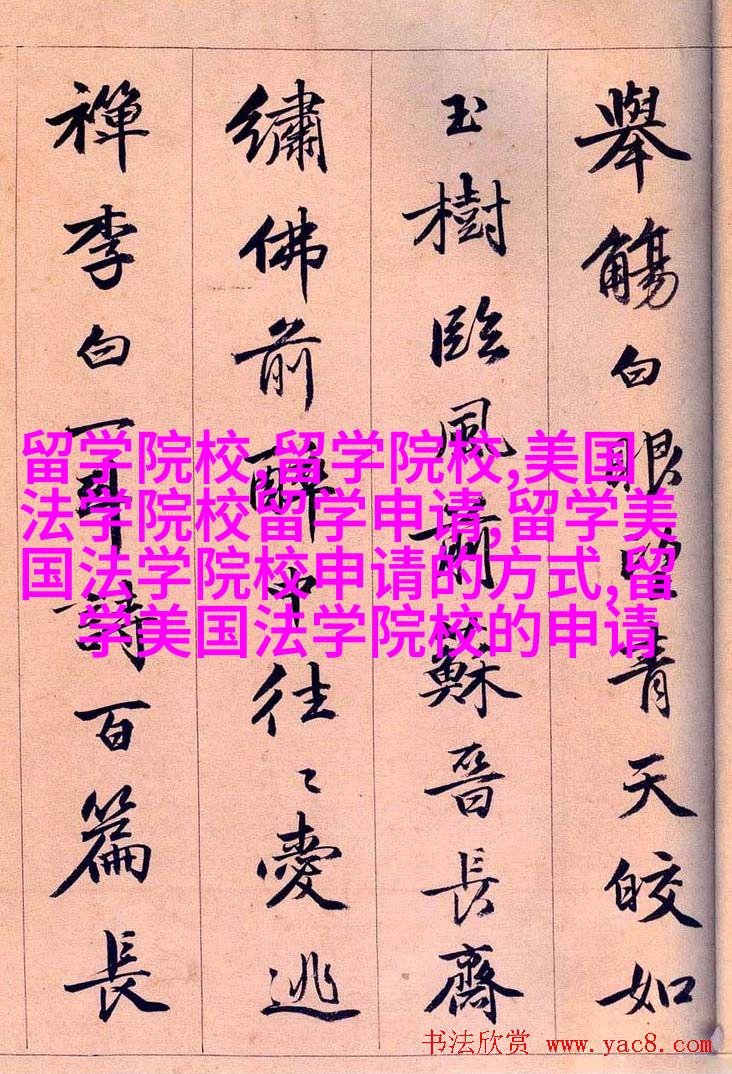 舉觴白眼望青天皎如
玉樹臨風前蘇晉長齋
繡佛前醉中往〻愛逃
禪李白一斗詩百篇長
留学院校,留学院校,美国
法学院校留学申请,留学美
国法学院校申请的方式,留
学美国法学院校的申请
书法欣赏 www.yac8.com